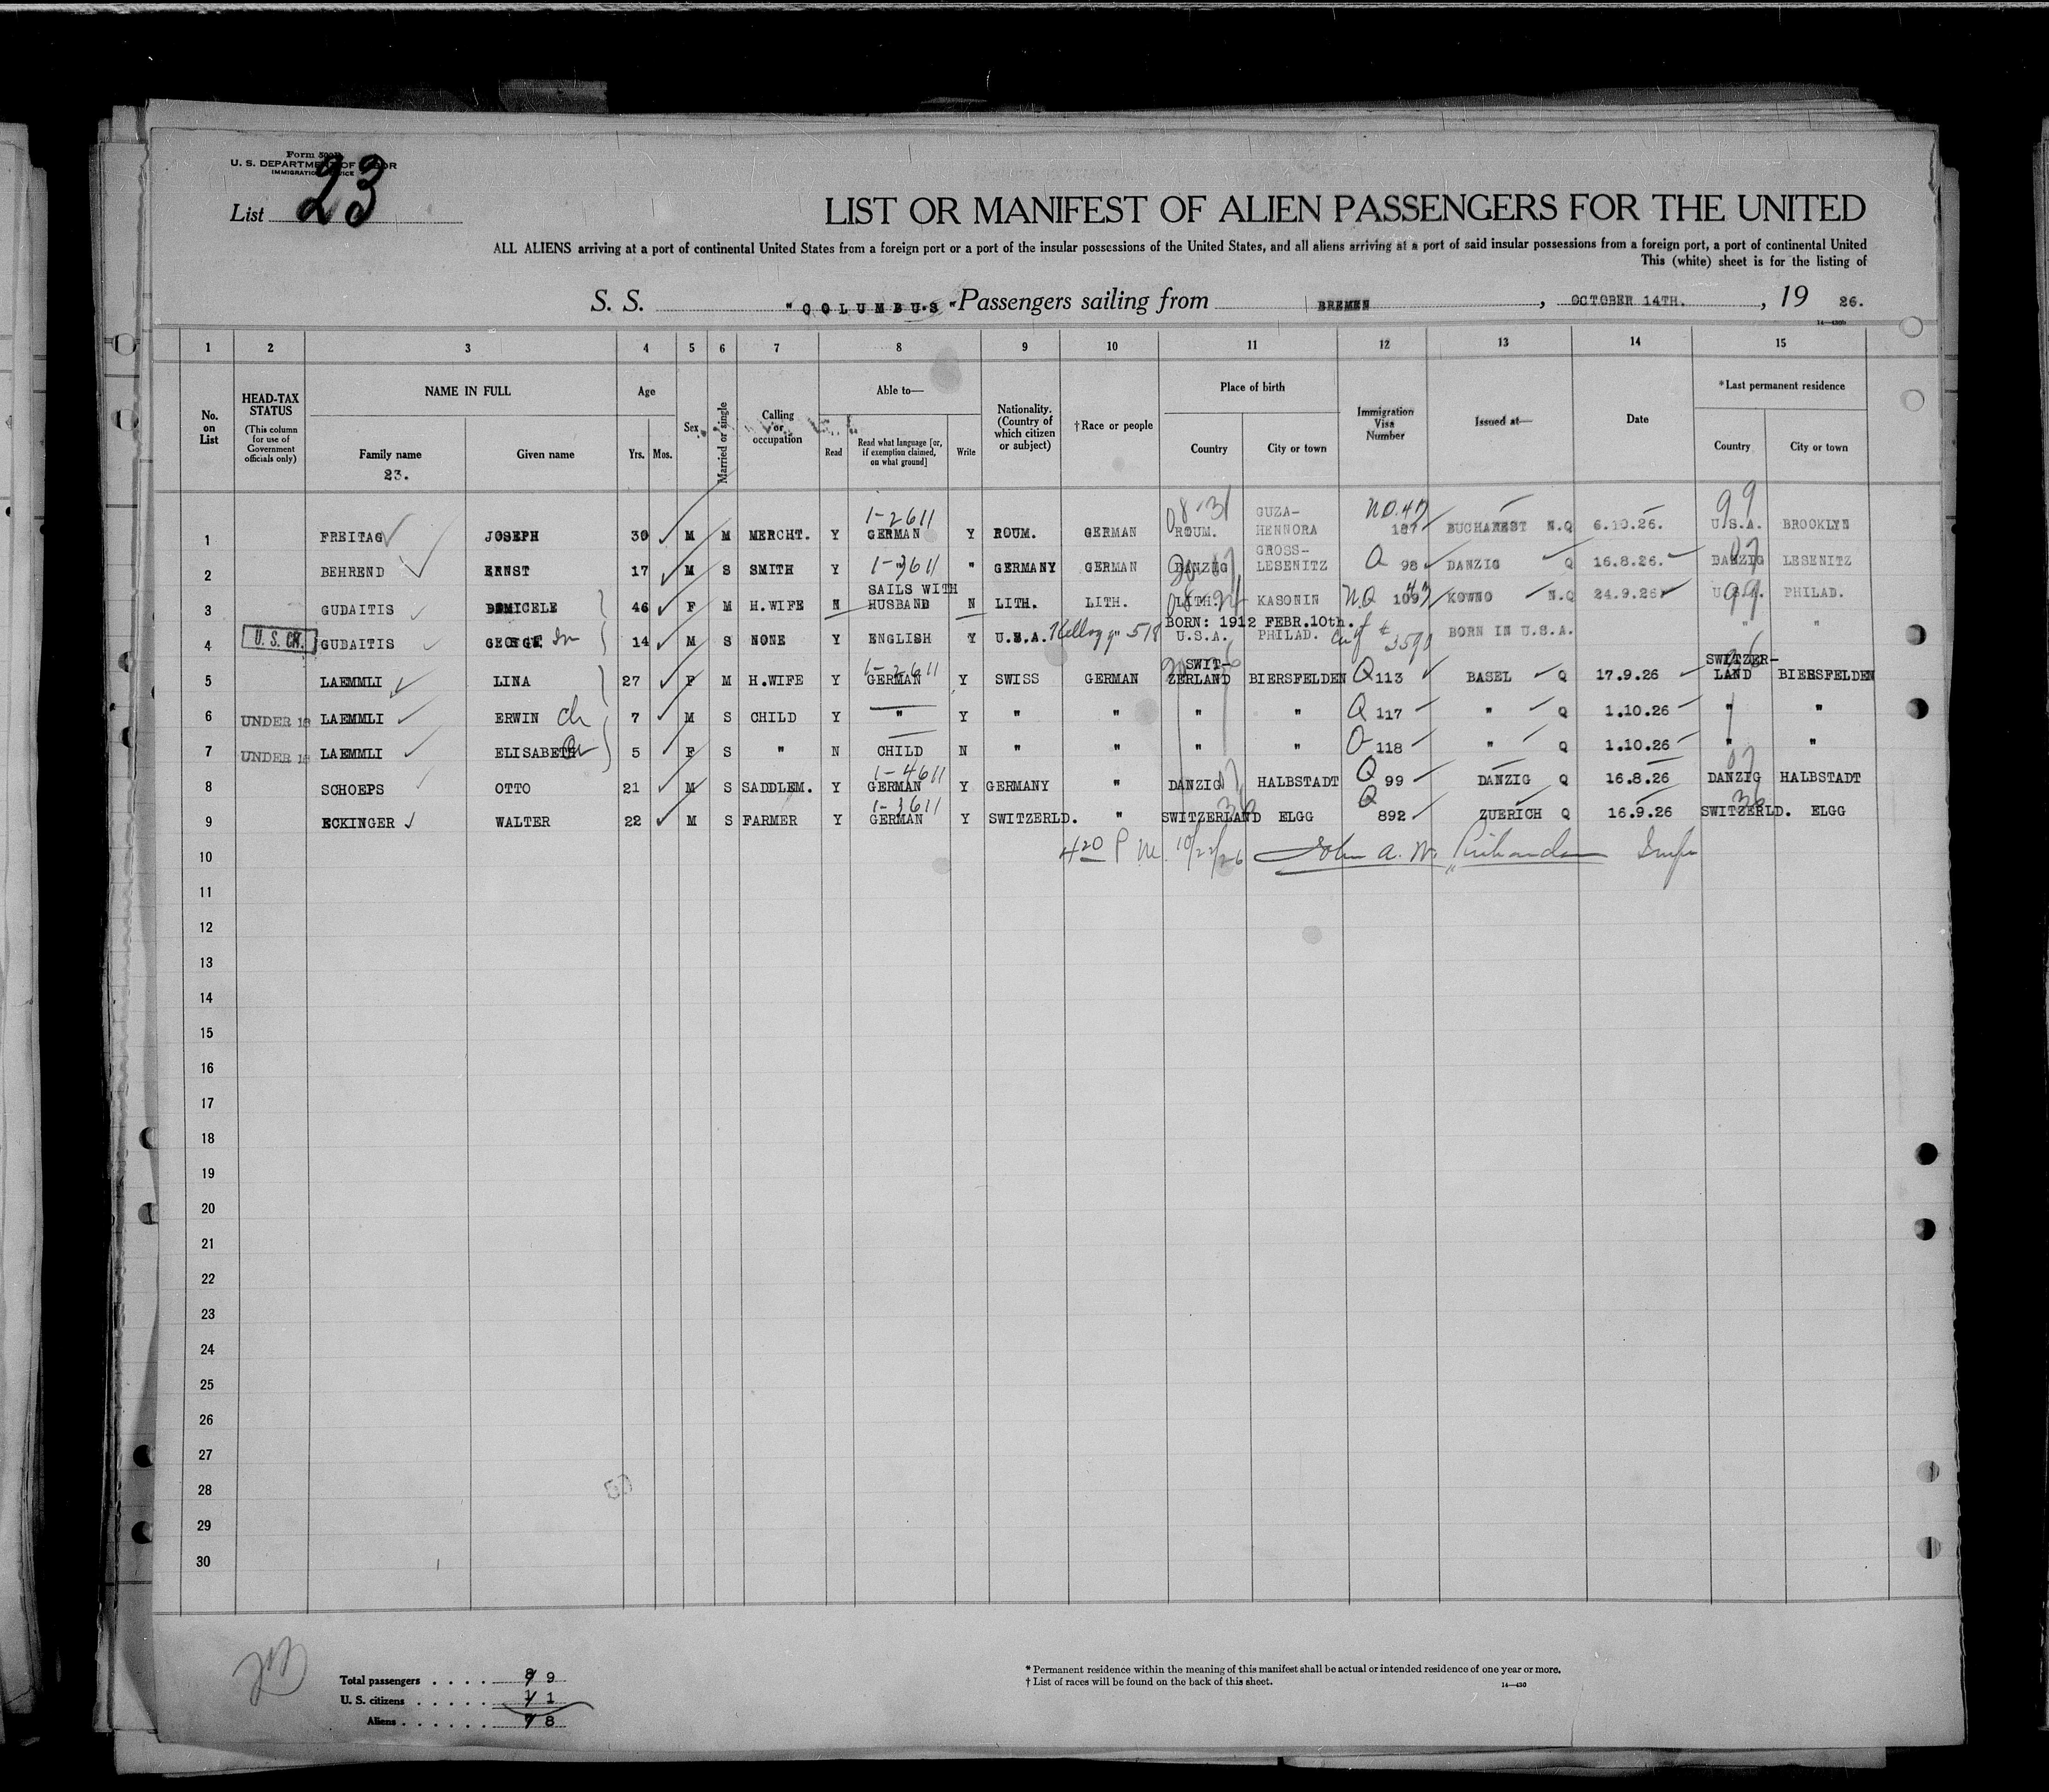 Form 500B
U. S. DEPARTMENT OF LABOR
IMMIGRATION SERVICE
List 23
LIST OR MANIFEST OF ALIEN PASSENGERS FOR THE UNITED
ALL ALIENS arriving at a port of continental United States from a foreign port or a port of the insular possessions of the United States, and all aliens arriving at a port of said insular possessions from a foreign port, a port of continental United
This (white) sheet is for the listing of
S. S. "COLUMBUS" Passengers sailing from BREMEN, OCTOBER 14TH., 19 26.
1 2 3 4 5 6 7 8 9 10 11 12 13 14 15
No. on List
HEAD-TAX STATUS (This column for use of Government officials only)
NAME IN FULL Family name Given name
23.
Age Yrs. Mos.
Sex
Married or single
Calling or occupation
Able to— Read Read what language [or, if exemption claimed, on what ground] Write
Nationality. (Country of which citizen or subject)
†Race or people
Place of birth Country City or town
Immigration Visa Number
Issued at—
Date
*Last permanent residence Country City or town
1 FREITAG JOSEPH 30 M M MERCHT. Y 1-2611 GERMAN Y ROUM. GERMAN ROUM. GUZA-HENNORA NO. 187 BUCHAREST N.Q 6.10.26. 99 U.S.A. BROOKLYN
2 BEHREND ERNST 17 M S SMITH Y 1-3611 " " GERMANY GERMAN DANZIG GROSS-LESENITZ Q 98 DANZIG Q 16.8.26. DANZIG LESENITZ
3 GUDAITIS 46 F M H.WIFE N SAILS WITH HUSBAND N LITH. LITH. LITH. KASONIN NQ 109 KOWNO N.Q 24.9.26 99 U.S.A. PHILAD.
BORN: 1912 FEBR.10th.
4 U.S. CIT. GUDAITIS GEORGE 14 M S NONE Y ENGLISH Y U.S.A. U.S.A. PHILAD. BORN IN U.S.A. " "
5 LAEMMLI LINA 27 F M H.WIFE Y 1-2611 GERMAN Y SWISS GERMAN SWIT-ZERLAND BIERSFELDEN Q 113 BASEL Q 17.9.26 SWITZER-LAND BIERSFELDEN
6 UNDER 16 LAEMMLI ERWIN ch 7 M S CHILD Y " Y " " " " Q 117 " Q 1.10.26 " "
7 UNDER 16 LAEMMLI ELISABETH ch 5 F S " N CHILD N " " " " Q 118 " Q 1.10.26 " "
8 SCHOEPS OTTO 21 M S SADDLEM. Y 1-4611 GERMAN Y GERMANY " DANZIG HALBSTADT Q 99 DANZIG Q 16.8.26 DANZIG HALBSTADT
9 ECKINGER WALTER 22 M S FARMER Y 1-3611 GERMAN Y SWITZERLD. " SWITZERLAND ELGG Q 892 ZUERICH Q 16.9.26 SWITZERLD. ELGG
10 4 20 P M. 10/22/26 John A. W.
11
12
13
14
15
16
17
18
19
20
21
22
23
24
25
26
27
28
29
30
Total passengers . . . . 8 9
U. S. citizens . . . . . 1 1
Aliens . . . . . . 7 8
* Permanent residence within the meaning of this manifest shall be actual or intended residence of one year or more.
† List of races will be found on the back of this sheet.
14—430